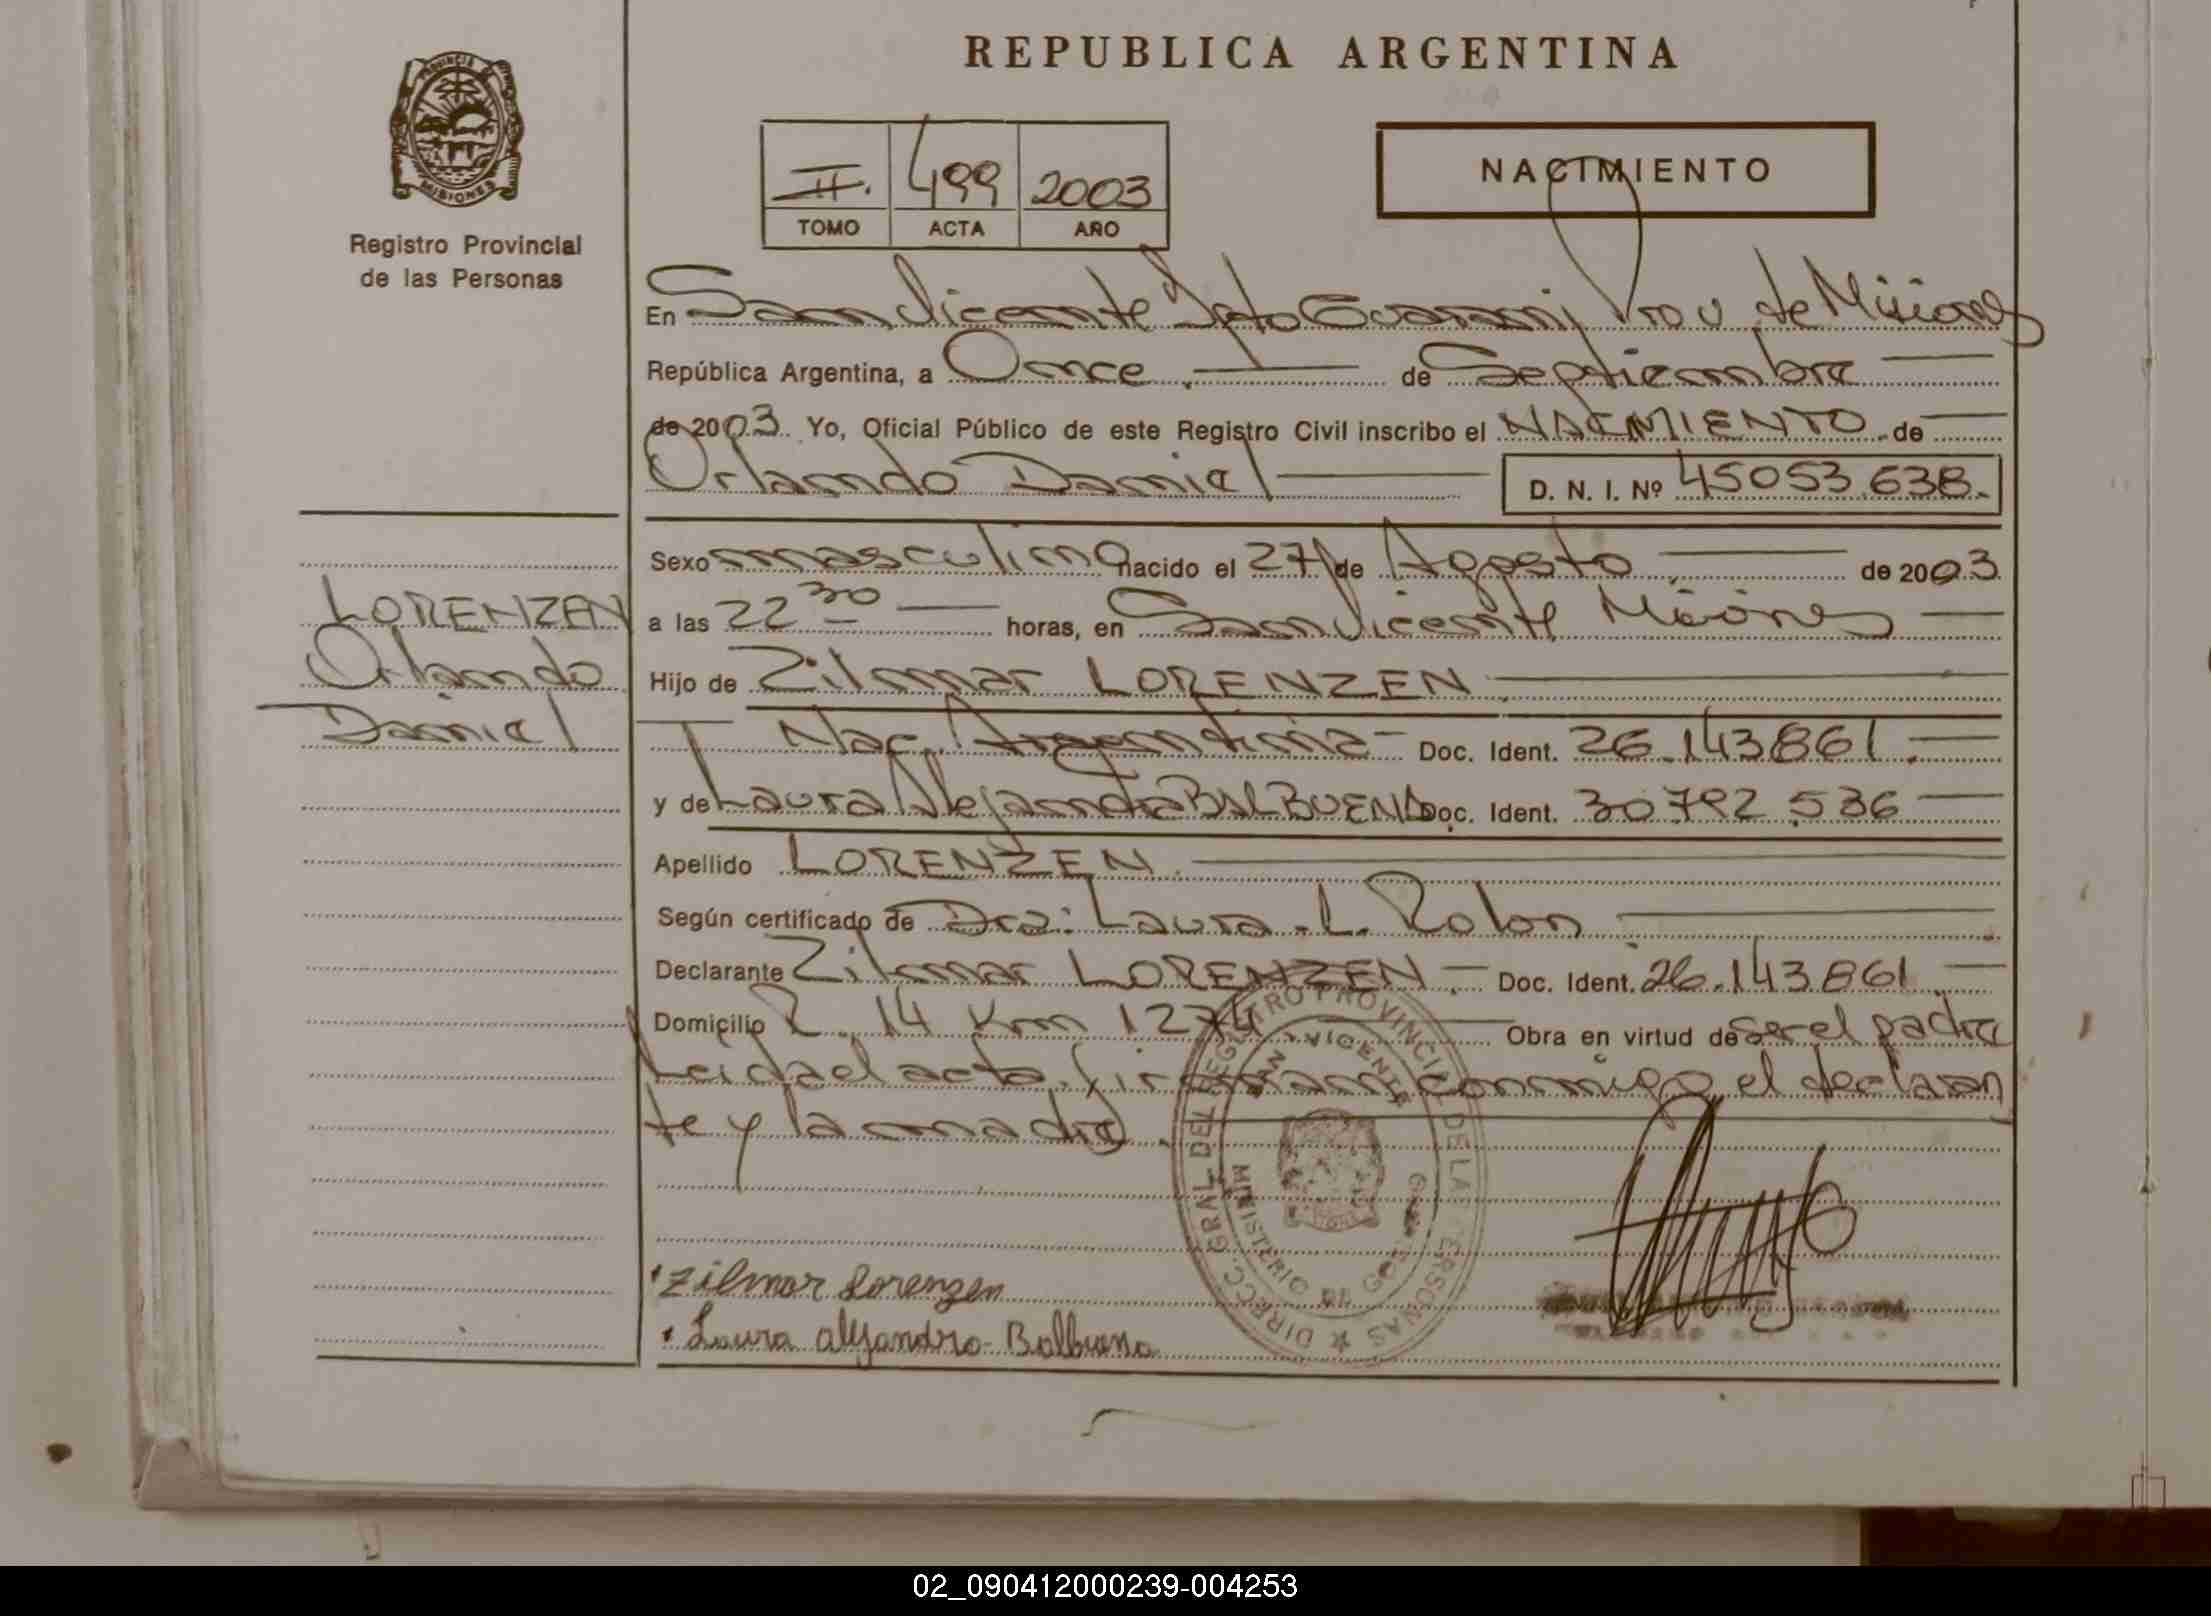 REPUBLICA ARGENTINA
PROVINCIA DE
MISIONES
Registro Provincial
de las Personas
II. 499 2003
TOMO ACTA AÑO
NACIMIENTO
En San Vicente Dpto Guarani, Prov de Misiones
República Argentina, a Once de Septiembre
de 2003 Yo, Oficial Público de este Registro Civil inscribo el NACIMIENTO de
Orlando Daniel D. N. I. Nº 45053.638.
Sexo masculino nacido el 27 de Agosto de 2003
a las 22 30 horas, en San Vicente Misiones
Hijo de Zilmar LORENZEN
Nac. Argentina Doc. Ident. 26.143861.
y de Laura Alejandra BALBUENA Doc. Ident. 30792.536
Apellido LORENZEN.
Según certificado de Dra: Laura.L. Rolon
Declarante Zilmar LORENZEN. Doc. Ident. 26.143861.
Domicilio R. 14 Km 1274 Obra en virtud de ser el padre
Leida el acta, firman conmigo el declaran
te y la madre.
LORENZEN
Orlando
Daniel
DIRECC. GRAL. DEL REGISTRO PROVINCIAL DE LAS PERSONAS
SAN VICENTE
MINISTERIO DE GOBIERNO
Zilmar Lorenzen
Laura Alejandra Balbuena
02_090412000239-004253